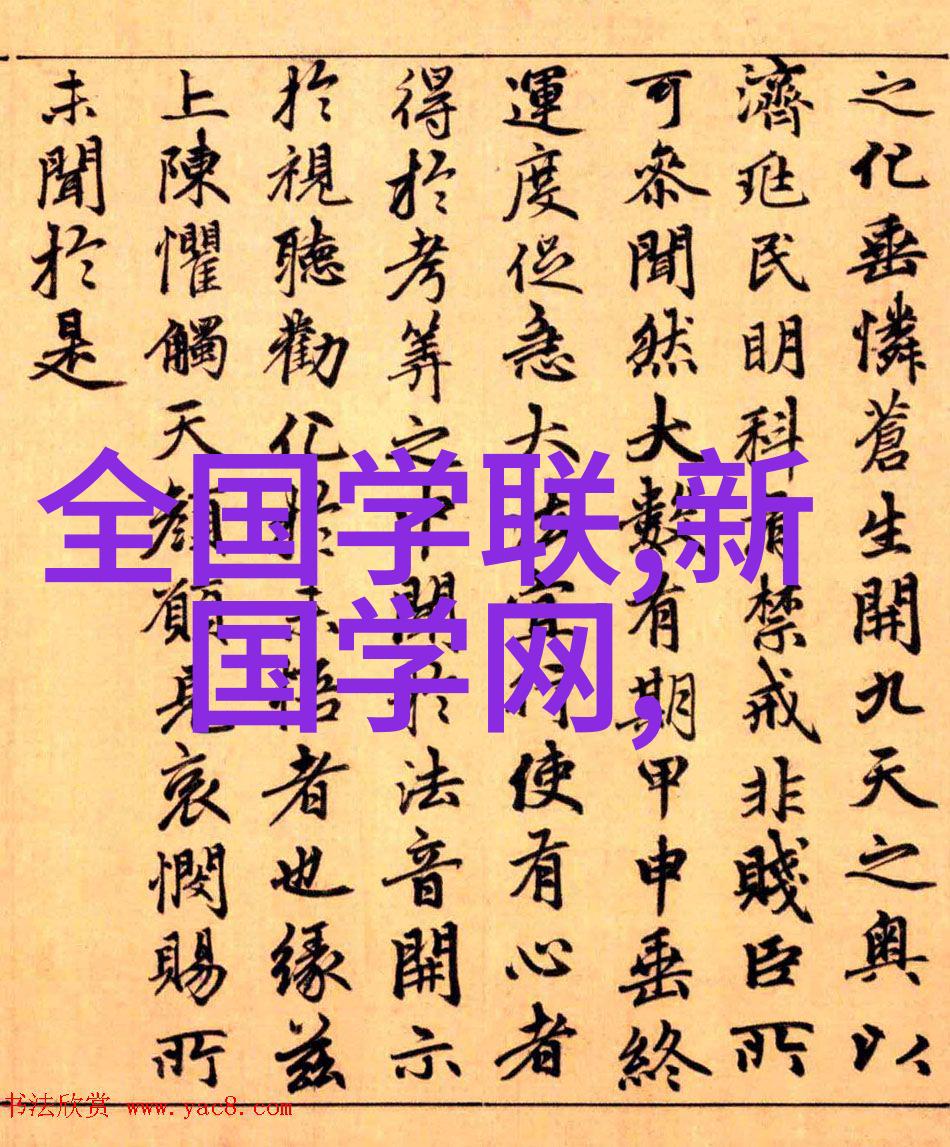 之化垂憐蒼生開九天之奧以
濟兆民明科有禁戒非賤臣所
可叅聞然大數有期甲申垂終
運度促急大法宜行使有心者
得於考筭之中開於法音開示
於視聽勸化於未悟者也緣茲
上陳懼觸天顏願見哀憫賜所
未聞於是
全国学联,新
国学网,
书法欣赏 www.yac8.com